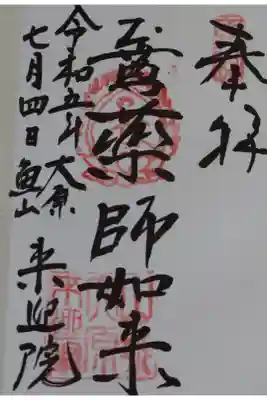 奉拝
薬師如来
令和五年 大原
七月四日 魚山
来迎院